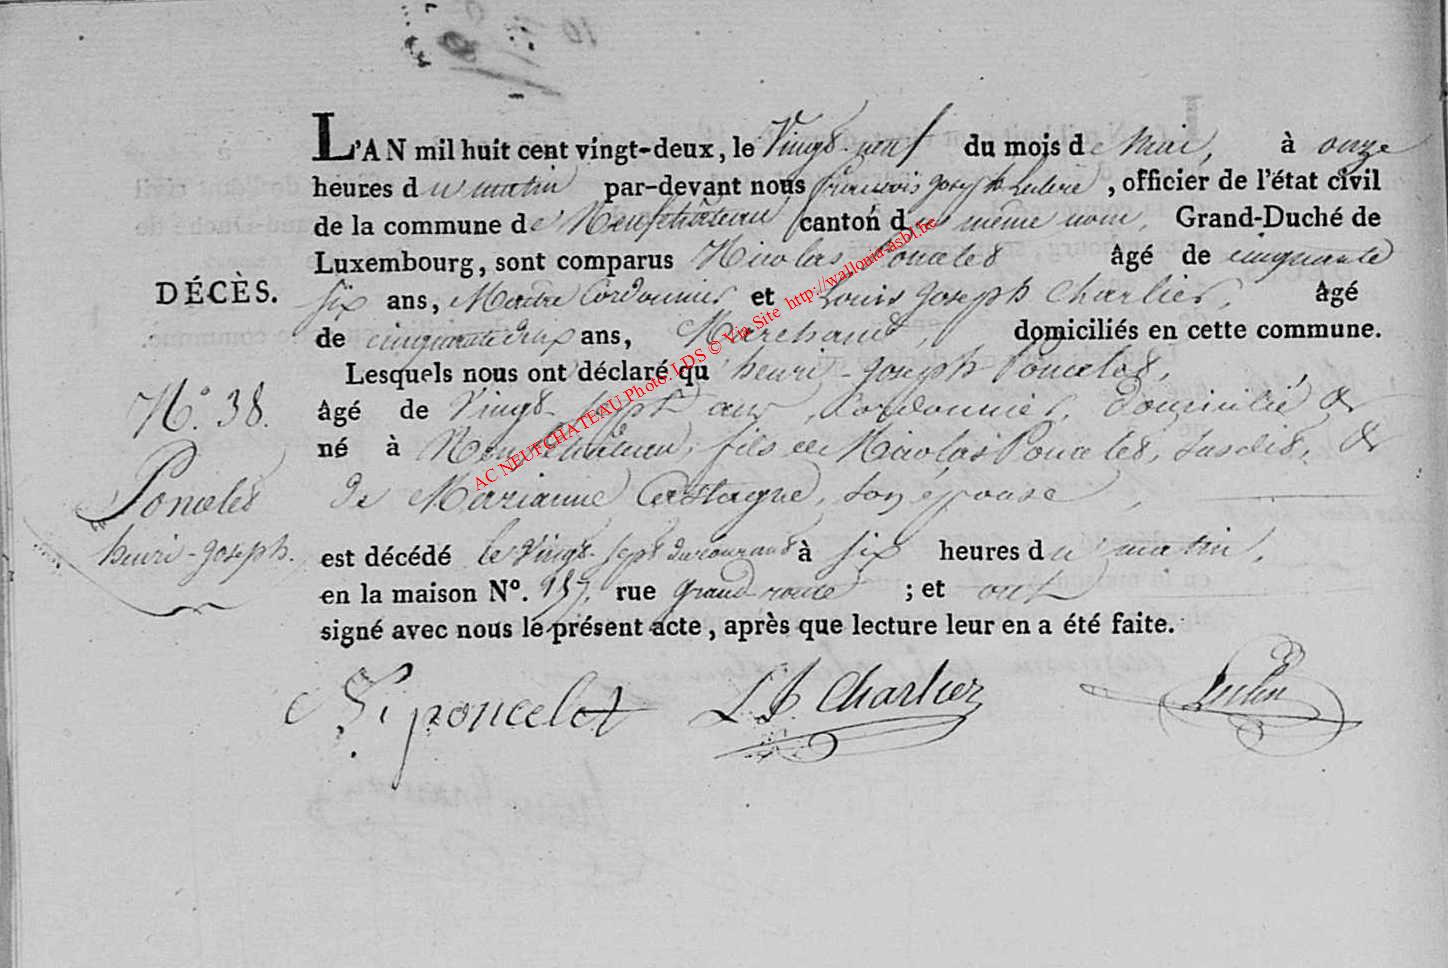 L'AN mil huit cent vingt-deux, le Vingt-neuf du mois de Mai, à onze
heures du matin par-devant nous francois joseph , officier de l'état civil
de la commune de Neufchâteau canton du même nom, Grand-Duché de
Luxembourg, sont comparus Nicolas Poncelet âgé de cinquante
DÉCÈS.
six ans, Maitre Cordonnier et Louis joseph Charlier, âgé
de cinquante deux ans, Marchand, domiciliés en cette commune.
Lesquels nous ont déclaré qu henri-joseph Poncelet,
N.° 38.
âgé de Vingt-sept ans, Cordonnier, Domicilié &
né à Neufchâteau, fils de Nicolas Poncelet, susdit, &
Poncelet
de Marianne Castagne, son épouse,
henri-joseph.
est décédé le Vingt-sept du courant à six heures du matin,
en la maison N°. 157, rue Grand-route ; et ont
signé avec nous le présent acte, après que lecture leur en a été faite.
Ni poncelet LJ Charlier
AC NEUFCHATEAU Photo. LDS © Via Site http://wallonia-asbl.be